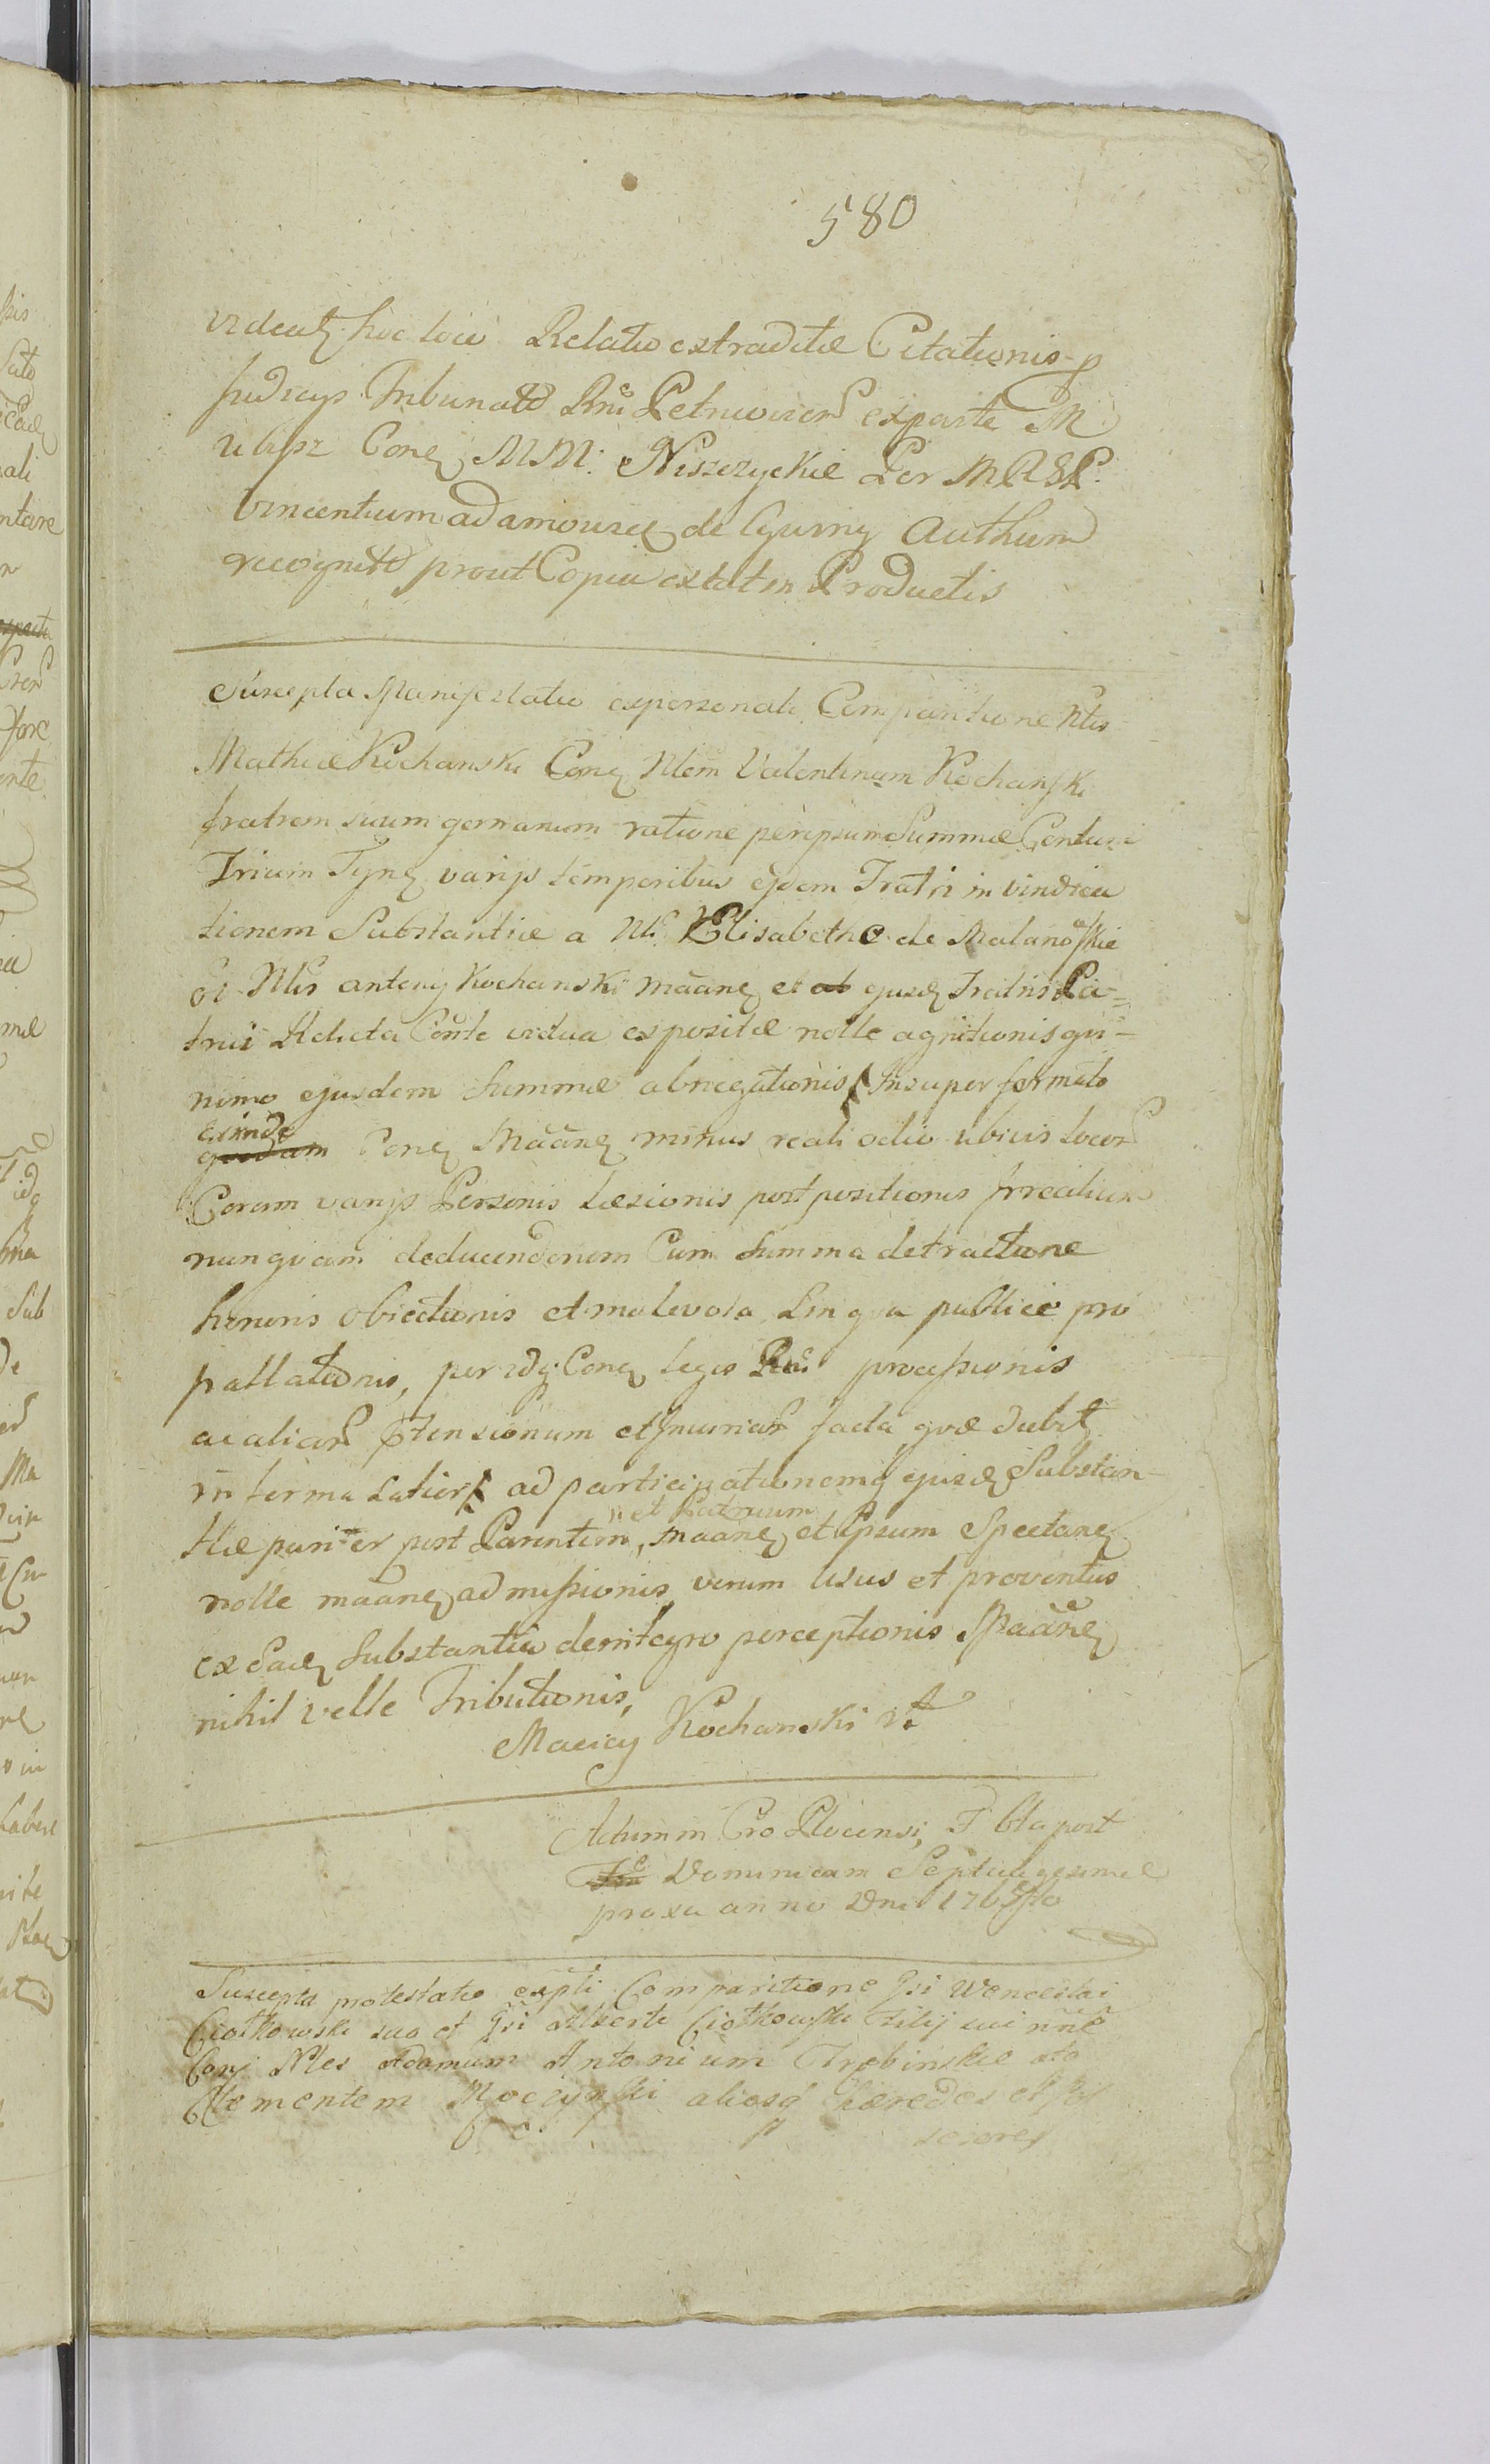 580
videatz hoc loco Relatio extraditæ Citationis p
Judicijs Tribunalis Rni Petricovien exparte M
Conq MM: Niszczyckie Per MRSP.
Vincentium Adamousq de Authum
recognit prout Copia extat in Productis
Suscepta Manifestatio expersonali Comparitione Nlis
Mathiæ Kochanski Conq Nlem Valentinum Kochanski
fratrem suum germanum ratione peripsum Summæ Centum
Trium Tynq varijs temporibus ejdem Fratri in vindica
tionem Substantiæ a Nli Elisabetha de Malanowskie
oi Nlis Antonij Kochanski Mãanq et ab ejusq Fratris Pa=
trui Relicta Conte vidua expositæ nolle agnitionis gvi=
nimo ejusdem Summæ abnegationis, Insuper formato
exinde
Conq Mãanq minus reali odio ubivis locor
Coram varijs Personis Læsionis postpositionis
nunqvam deducendorum Cum Summa detractione
honoris Obiectionis et malevola Lingva publice pro
pallationis, per idq Conq leges Rni processionis
ac aliar ptensionum et Injuriar facta, qvæ dubit
in termo Latior, ad participationemq ejusq Substan=
" et Patruum
tiæ pariter post Parentem, Mãanq et Ipsum Spectanq
nolle Mãanq admissionis, verum usus et proventus
ex Eadq Substantia deintegro perceptionis Mãanq
nihil velle Tributionis,
Maciey Kochanski
Actum in Cro Plocensi F. 6ta post
Dominicam Septuagesimæ
proxa anno Dni 1765to
Suscepta protestatio expli Comparitione Gsi Wenceslai
Ciołkowski suo et Gsi Alberti Ciołkowski Filij sui nnẽ
Conq Nles Adamum Antonium Trębinskie ato
Clementem Moczynski aliosq hæredes et Pos
sesores